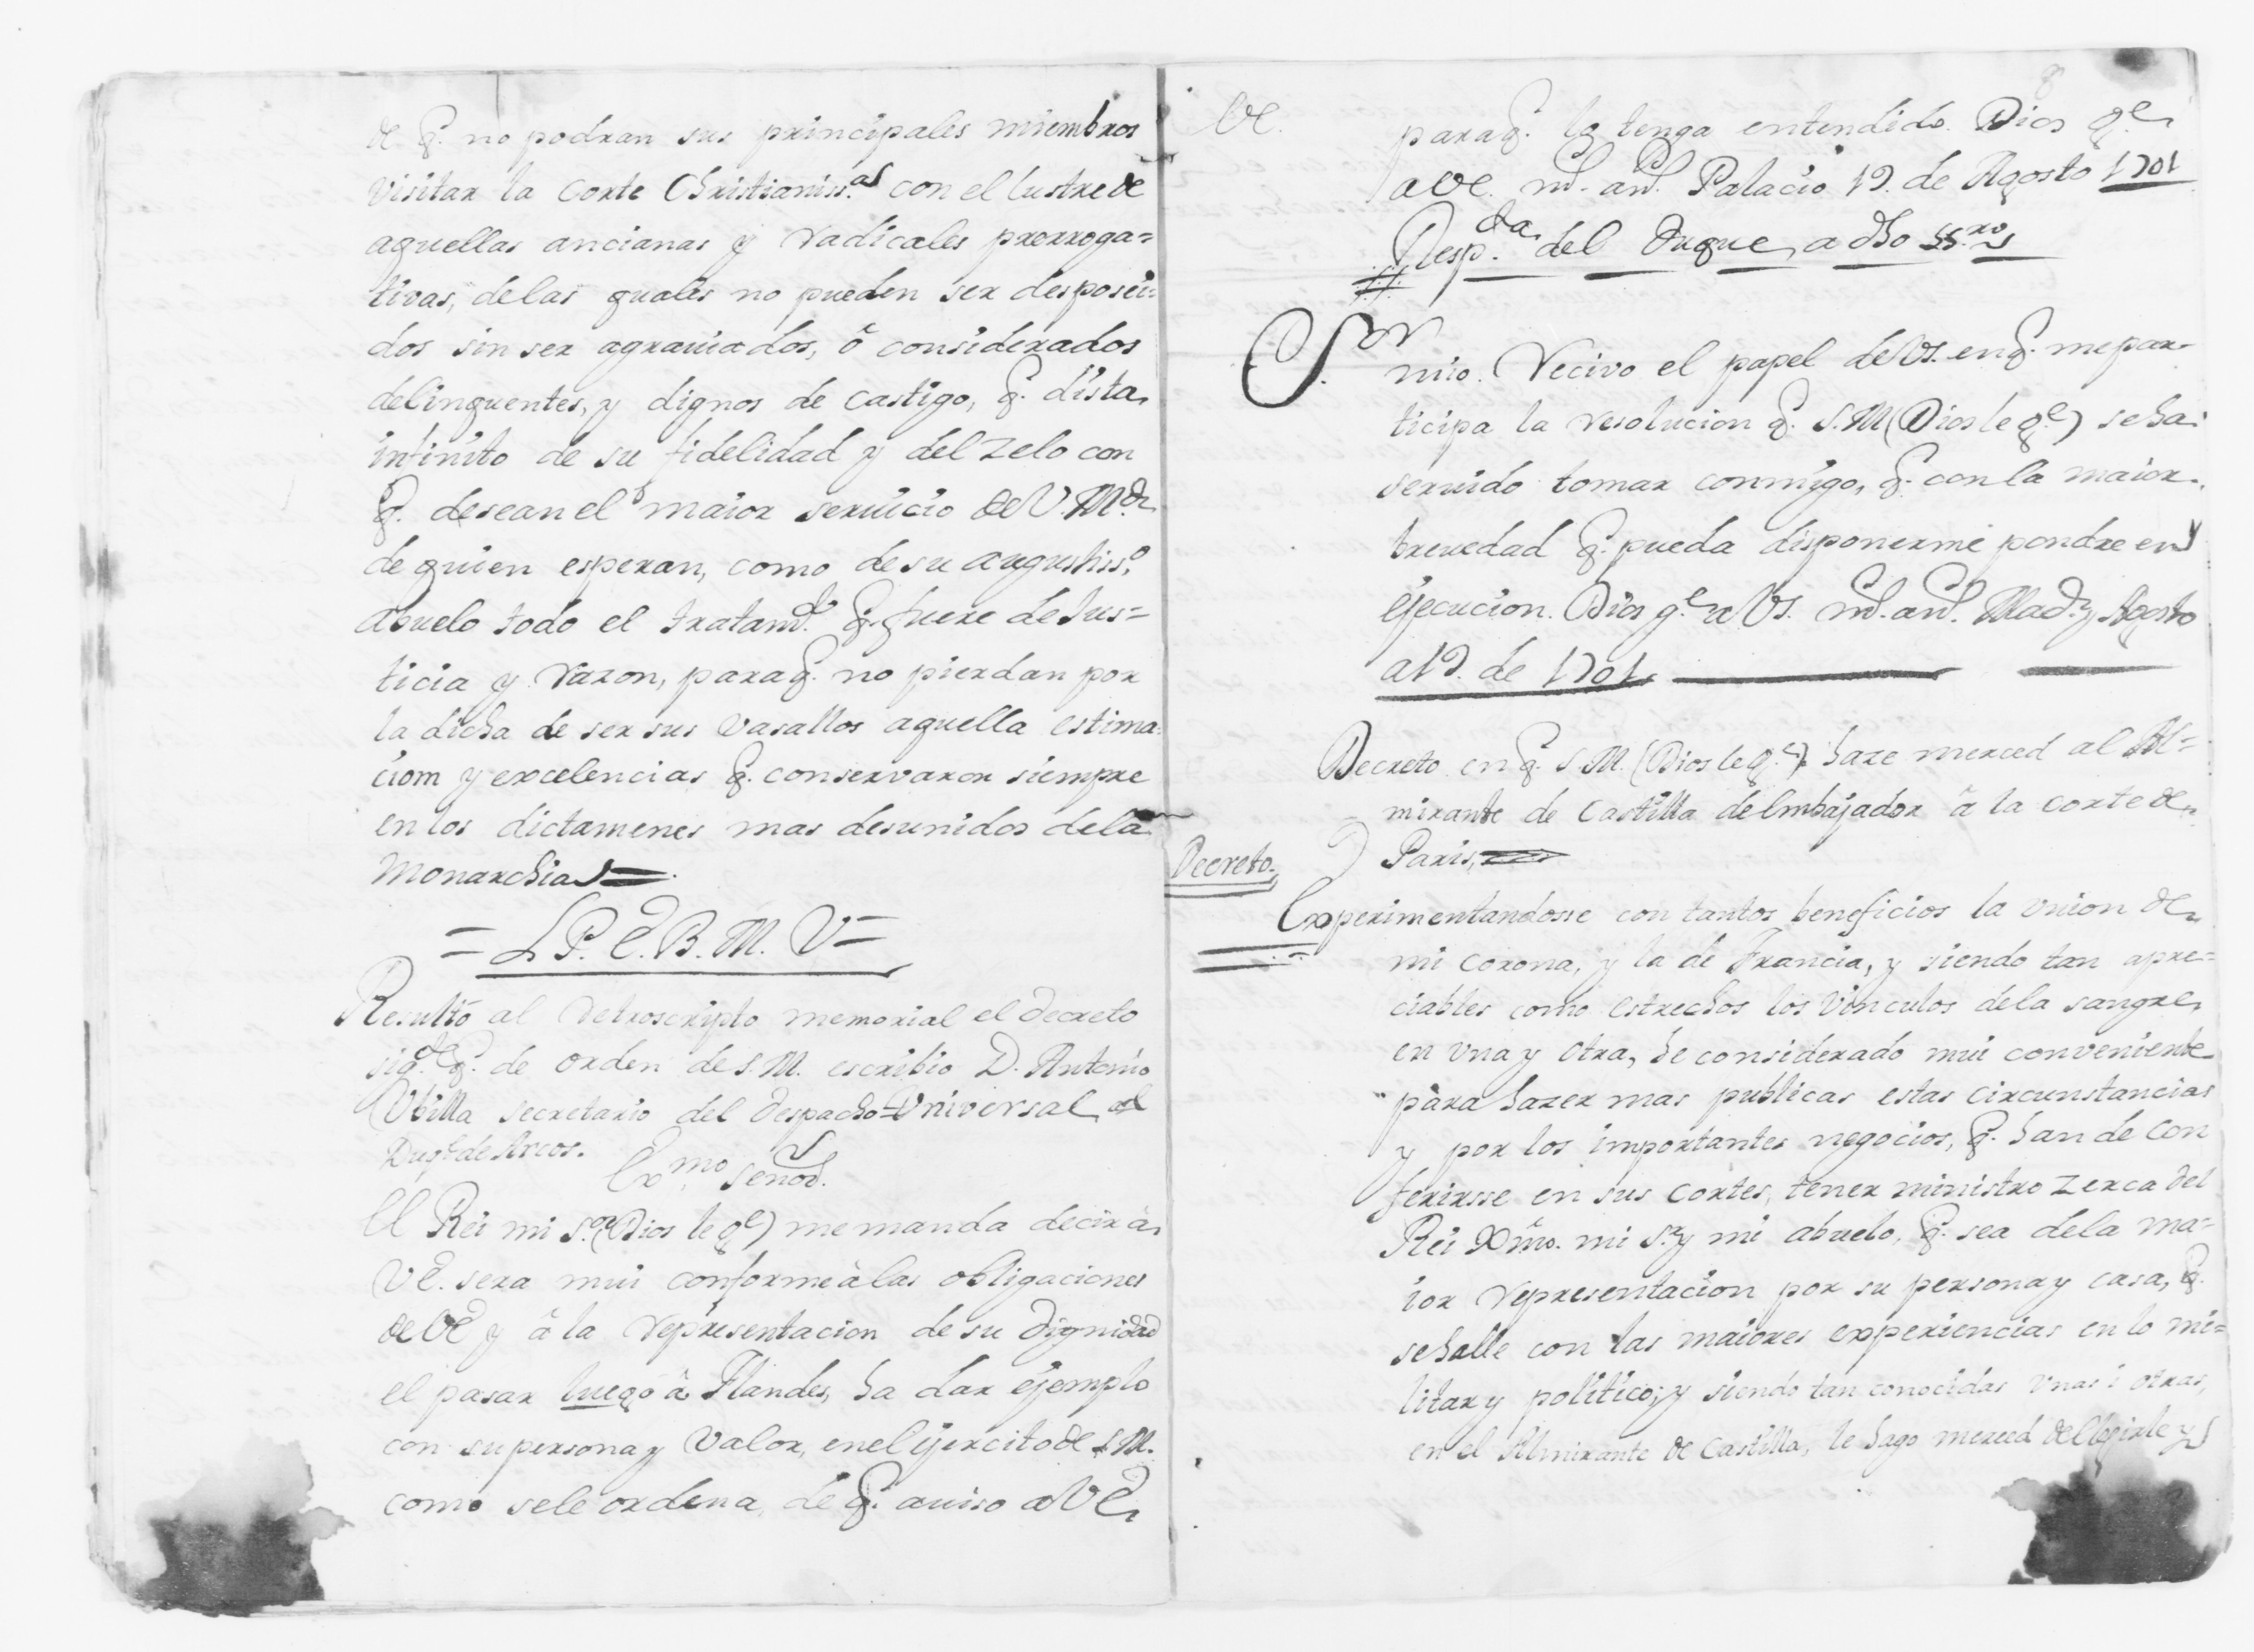 de q. no podran sus principales miembros
visitar la Corte Christianiss.as con el lustre de
aquellas ancianas y radicales prerroga=
tivas, de las quales no pueden ser desposei=
dos sin ser agraviados, ô considerados
delinquentes, y dignos de castigo, q. dista
infinito de su fidelidad y del zelo con
q. desean el maior servicio de V. Md.
de quien esperan, como de su augustiss.o
Abuelo todo el tratam.to q. fuere de Jus=
ticia y razon, para q. no pierdan por
la dicha de ser sus vasallos aquella estima=
ciom y excelencias q. conservaron siempre
en los dictamenes mas desunidos dela
Monarchia =
= L. P. d. B. M. V =
Resultó al retroscripto memorial el decreto
sig.te q. de orden de S. M. escribio D. Antonio
Vbilla secretario del Despacho Vniversal al
Duq.e de Arcos.
Ex.mo Señor.
El Rei mi S.or (Dios le g.e) me manda decir à
VE. sera mui conforme à las obligaciones
de VE y â la representacion de su Dignidad
el pasar luego â Flandes, ha dar ejemplo
con su persona y valor, en el ejercito de S. M.
como se le ordena, de q. aviso a VE
VE. para q. lo tenga entendido. Dios g.e
a VE. m.s an.s Palacio 19. de Agosto 1701
Resp.da del Duque, a dho ss.rio
S.or mio. Recivo el papel de VS. en q. me par=
ticipa la resolucion q. S. M (Dios le g.e) se ha
servido tomar conmigo, q. con la maior
brevedad q. pueda disponerme pondre en
ejecucion. Dios g.e a VS. m.s an.s Mad. y Agosto
a 19. de 1701.
Decreto en q. S. M. (Dios le g.e) haze merced al Al=
mirante de Castilla de Embajador â la corte de
Paris,
Decreto.
Experimentandosse con tantos beneficios la vnion de
mi corona, y la de Francia, y siendo tan apre=
ciables como estrechos los vinculos dela sangre,
en vna y otra, he considerado mui conveniente
para hazer mas publicas estas circunstancias
y por los importantes negocios, q. han de con
ferirsse en sus cortes, tener ministro zerca del
Rei Xmo. mi S.r y mi abuelo, q. sea dela ma=
ior representacion por su persona y casa, q.
se halle con las maiores experiencias en lo mi=
litar y politico; y siendo tan conocidas vnas i otras,
en el Almirante de Castilla, le hago merced de elegirle y